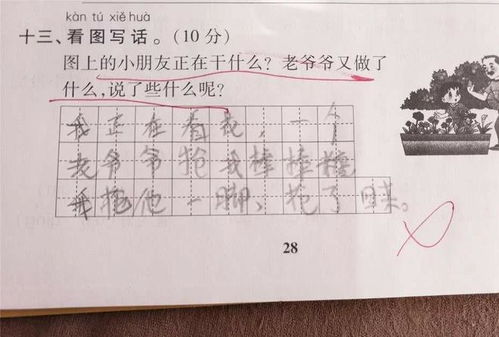 kàn tú xiě huà
十三、看图写话。(10分)
图上的小朋友正在干什么?老爷爷又做了
什么,说了些什么呢?
我正在看花,一个
老爷爷抢我棒棒糖
我他一脚、抢了回来。
28